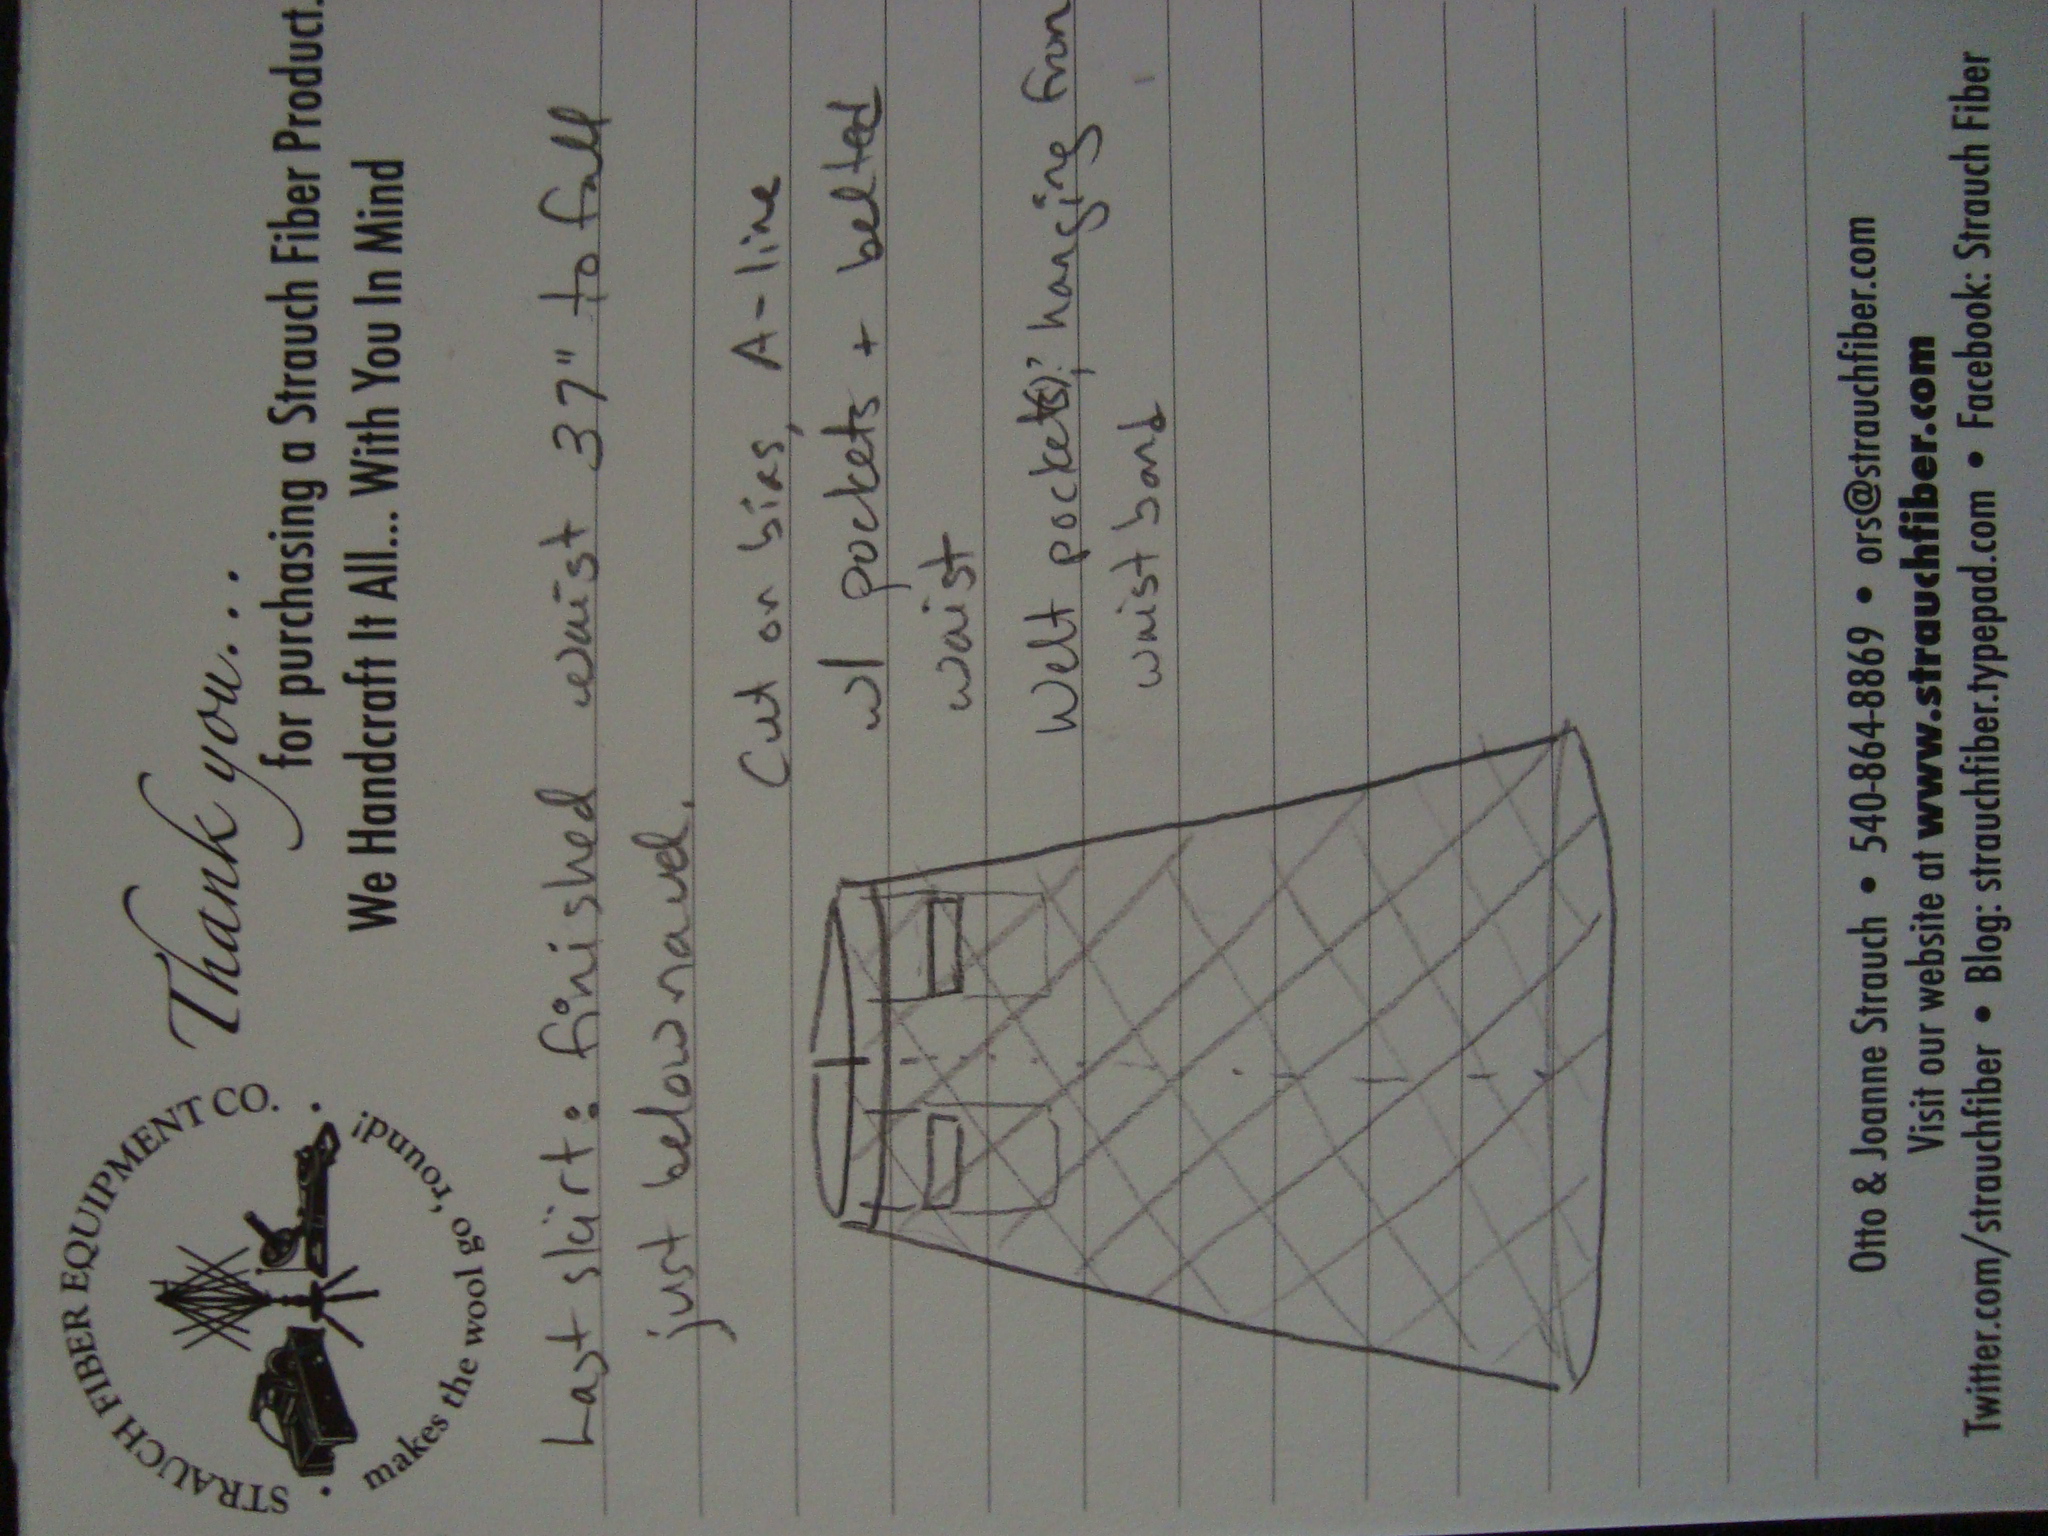 STRAUCH FIBER EQUIPMENT CO.
makes the wool go 'round!
Thank you...
for purchasing a Strauch Fiber Product.
We Handcraft It All... With You In Mind
Last skirt: finished waist 37" to fall
just below navel.
Cut on bias, A-line
w/ pockets + belted
waist
Welt pocket(s)? hanging from
waist band
Otto & Joanne Strauch • 540-864-8869 • ors@strauchfiber.com
Visit our website at www.strauchfiber.com
Twitter.com/strauchfiber • Blog: strauchfiber.typepad.com • Facebook: Strauch Fiber